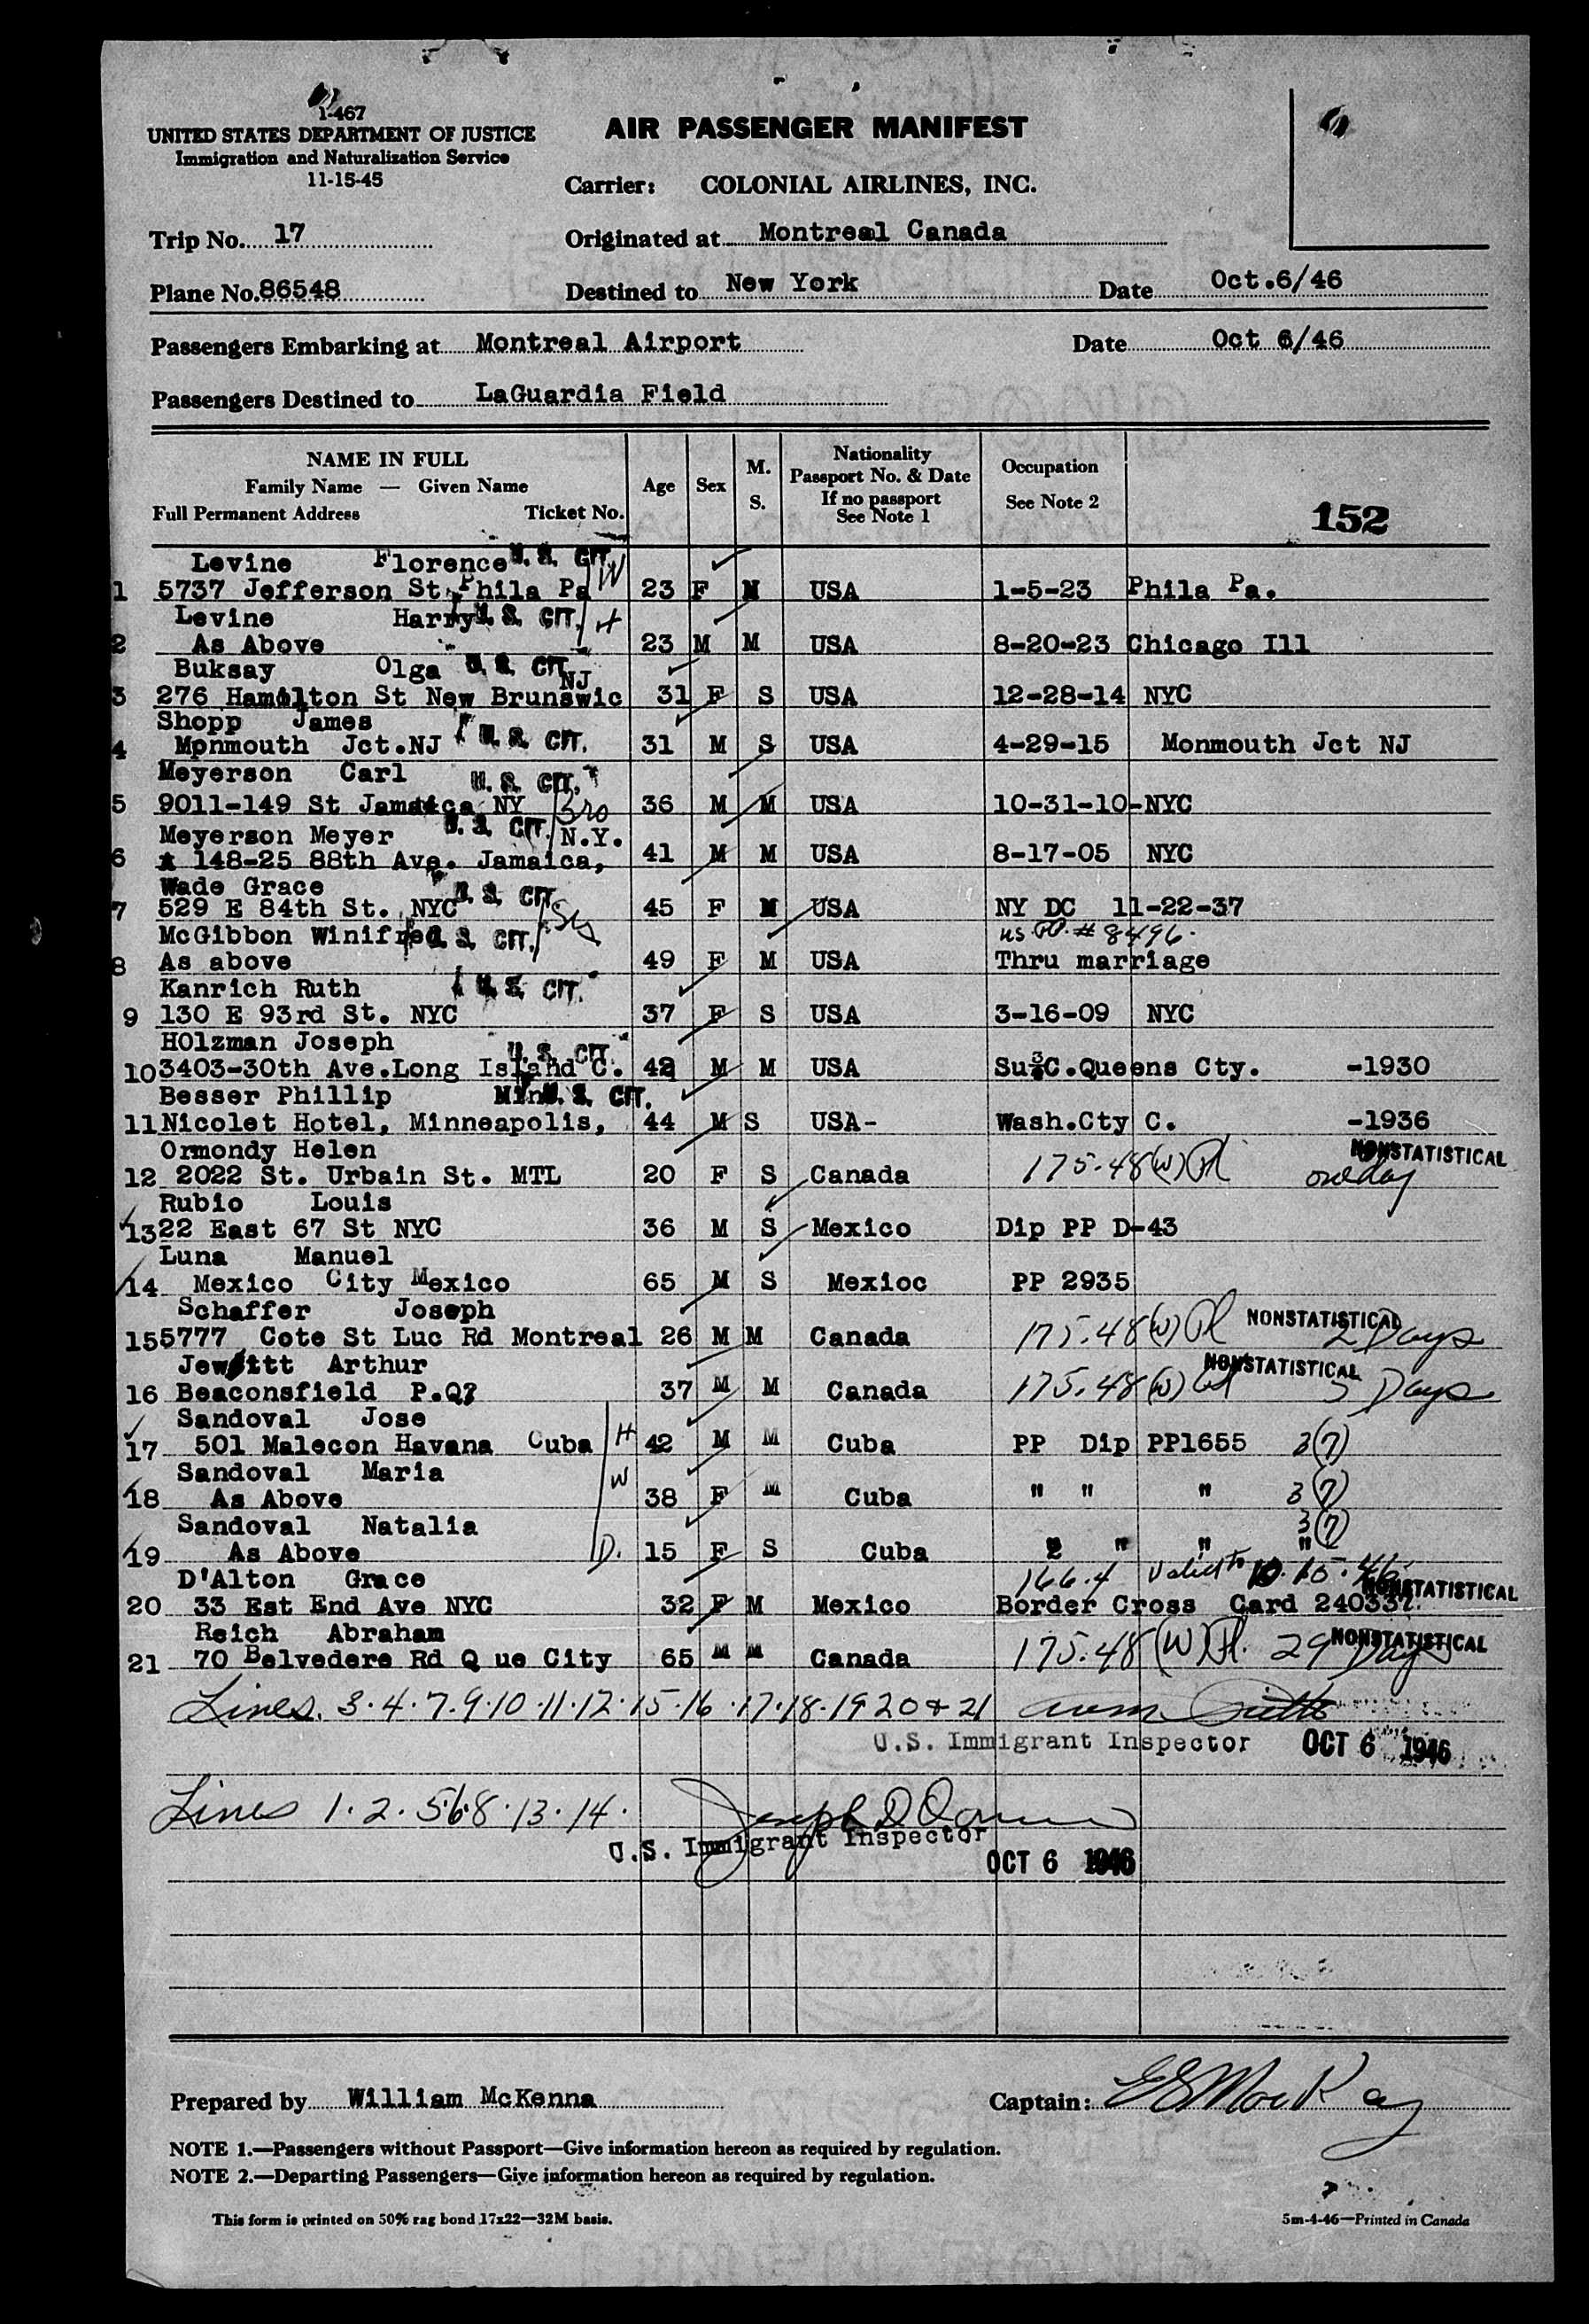 I-467
UNITED STATES DEPARTMENT OF JUSTICE
Immigration and Naturalization Service
11-15-45
AIR PASSENGER MANIFEST
Carrier: COLONIAL AIRLINES, INC.
Trip No. 17
Originated at Montreal Canada
Plane No. 86548
Destined to New York Date Oct.6/46
Passengers Embarking at Montreal Airport Date Oct 6/46
Passengers Destined to LaGuardia Field
NAME IN FULL
Family Name — Given Name
Full Permanent Address Ticket No.
Age Sex M. S.
Nationality
Passport No. & Date
If no passport
See Note 1
Occupation
See Note 2
152
Levine Florence U. S. CIT. W
1 5737 Jefferson St Phila Pa 23 F M USA 1-5-23 Phila Pa.
Levine Harry U. S. CIT. H
2 As Above 23 M M USA 8-20-23 Chicago Ill
Buksay Olga U. S. CIT. NJ
3 276 Hamilton St New Brunswic 31 F S USA 12-28-14 NYC
Shopp James
4 Monmouth Jct.NJ U. S. CIT. 31 M S USA 4-29-15 Monmouth Jct NJ
Meyerson Carl U. S. CIT.
5 9011-149 St Jamaica NY Bro 36 M M USA 10-31-10-NYC
Meyerson Meyer U. S. CIT. N.Y.
6 148-25 88th Ave. Jamaica, 41 M M USA 8-17-05 NYC
Wade Grace U. S. CIT.
7 529 E 84th St. NYC Sis 45 F M USA NY DC 11-22-37
McGibbon Winifred U. S. CIT. US PP. # 8496.
8 As above 49 F M USA Thru marriage
Kanrich Ruth U. S. CIT.
9 130 E 93rd St. NYC 37 F S USA 3-16-09 NYC
HOlzman Joseph U. S. CIT.
10 3403-30th Ave.Long Island C. 42 M M USA Su C.Queens Cty. -1930
Besser Phillip Min U. S. CIT.
11 Nicolet Hotel, Minneapolis, 44 M S USA- Wash.Cty C. -1936
Ormondy Helen NONSTATISTICAL
12 2022 St. Urbain St. MTL 20 F S Canada 175.48(w) one day
Rubio Louis
13 22 East 67 St NYC 36 M S Mexico Dip PP D-43
Luna Manuel
14 Mexico City Mexico 65 M S Mexioc PP 2935
Schaffer Joseph NONSTATISTICAL
15 5777 Cote St Luc Rd Montreal 26 M M Canada 175.48(w) 2 Days
Jewitt Arthur NONSTATISTICAL
16 Beaconsfield P.Q? 37 M M Canada 175.48(w) Days
Sandoval Jose
17 501 Malecon Havana Cuba H 42 M M Cuba PP Dip PP1655 3(7)
Sandoval Maria
18 As Above W 38 F M Cuba " " " 3(7)
Sandoval Natalia 3(7)
19 As Above D. 15 F S Cuba " " "
D'Alton Grace 166.4 Valid to 10.15.46 NONSTATISTICAL
20 33 Est End Ave NYC 32 F M Mexico Border Cross Card 240337
Reich Abraham NONSTATISTICAL
21 70 Belvedere Rd Q ue City 65 M M Canada 175.48(W) 29 Days
Lines. 3.4.7.9.10.11.12.15.16.17.18.19 20 & 21
U.S. Immigrant Inspector OCT 6 1946
Lines 1.2.5.6.8.13.14.
U.S. Immigrant Inspector
OCT 6 1946
Prepared by William McKenna
Captain: E E MacKay
NOTE 1.—Passengers without Passport—Give information hereon as required by regulation.
NOTE 2.—Departing Passengers—Give information hereon as required by regulation.
This form is printed on 50% rag bond 17x22—32M basis.
5m-4-46—Printed in Canada